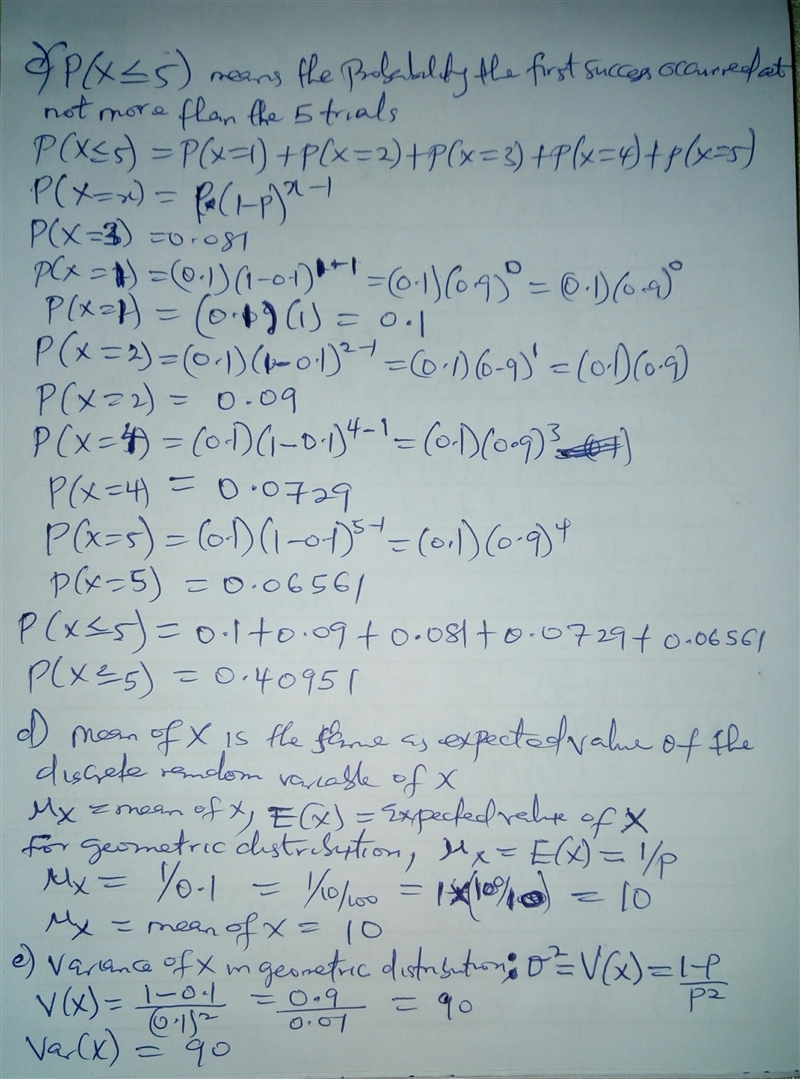 c) P(X≤5) means the Probability the first success occurred at
not more than the 5 trials
P(X≤5) = P(X=1) + P(X=2) + P(X=3) + P(X=4) + P(X=5)
P(X=x) = P(1-P)^x-1
P(X=3) = 0.081
P(X=1) = (0.1)(1-0.1)^1+1 = (0.1)(0.9)^0 = (0.1)(0.9)^0
P(X=1) = (0.1)(1) = 0.1
P(X=2) = (0.1)(1-0.1)^2-1 = (0.1)(0.9)^1 = (0.1)(0.9)
P(X=2) = 0.09
P(X=4) = (0.1)(1-0.1)^4-1 = (0.1)(0.9)^3
P(X=4) = 0.0729
P(X=5) = (0.1)(1-0.1)^5-1 = (0.1)(0.9)^4
P(X=5) = 0.06561
P(X≤5) = 0.1+0.09+0.081+0.0729+0.06561
P(X≤5) = 0.40951
d) mean of X is the same as expected value of the
discrete random variable of X
μx = mean of X, E(X) = Expected value of X
For geometric distribution, μx = E(X) = 1/P
μx = 1/0.1 = 1/10/100 = 1×(100/10) = 10
μx = mean of X = 10
e) Variance of X in geometric distribution; σ² = V(X) = 1-P/P²
V(X) = 1-0.1/(0.1)² = 0.9/0.01 = 90
Var(X) = 90